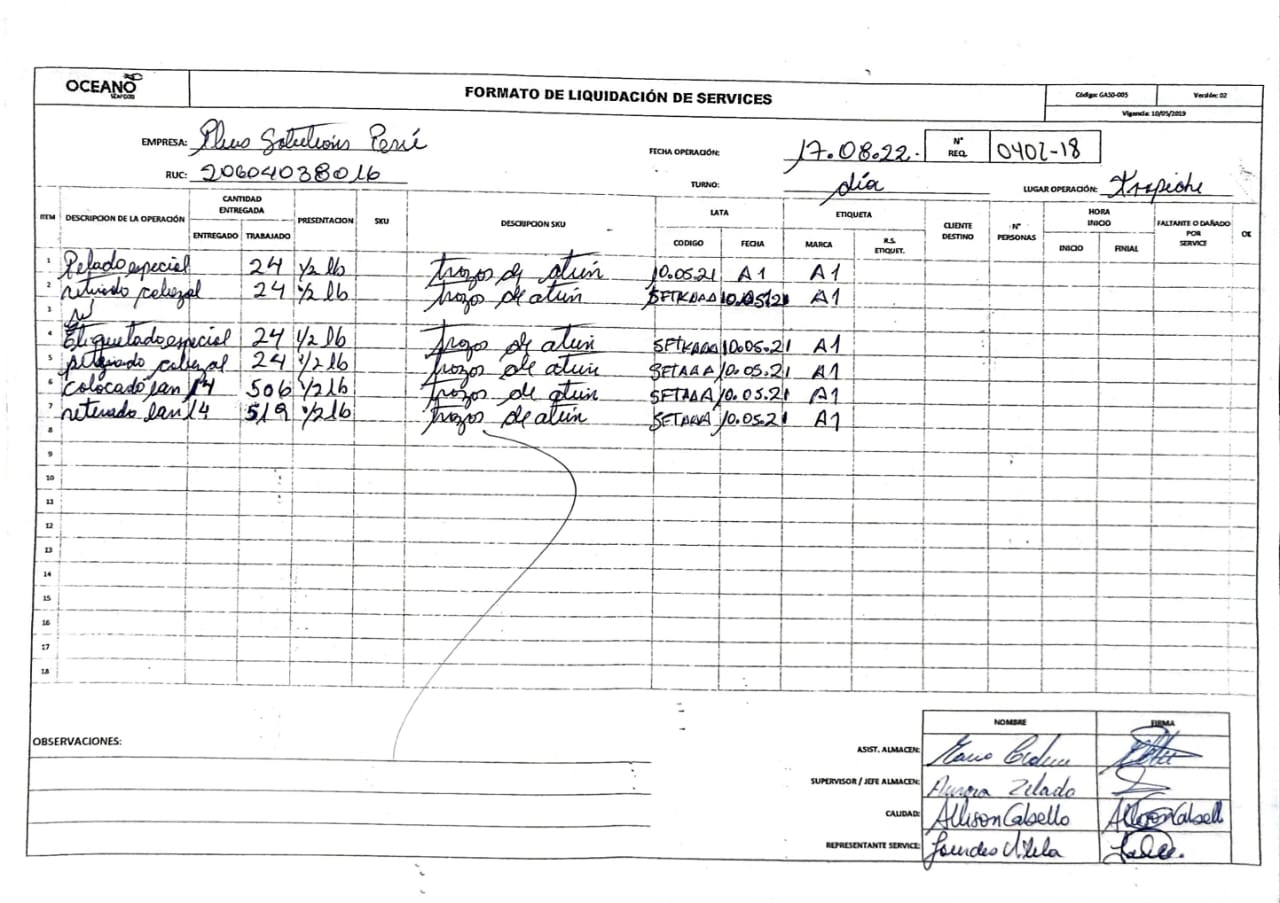 OCEANO
SEAFOOD
FORMATO DE LIQUIDACIÓN DE SERVICES
Código: GASO-005 Versión: 02
Vigencia: 10/05/2019
EMPRESA: Plus Solutions Perú
FECHA OPERACIÓN: 17.08.22.
N° REQ. 0402-18
RUC: 20604038016
TURNO: día
LUGAR OPERACIÓN: Trapiche
ITEM DESCRIPCION DE LA OPERACIÓN CANTIDAD ENTREGADA PRESENTACION SKU DESCRIPCION SKU LATA ETIQUETA CLIENTE DESTINO N° PERSONAS HORA INICIO FALTANTE O DAÑADO POR SERVICE OK
ENTREGADO TRABAJADO CODIGO FECHA MARCA R.S. ETIQUET. INICIO FINIAL
1 Pelado especial 24 1/2 lb trozos de atún 10.05.21 A1 A1
2 retirado cabezal 24 1/2 lb trozos de atún 10.05.21 A1
3
4 Etiquetado especial 24 1/2 lb trozos de atún 10.05.21 A1
5 cabezal 24 1/2 lb trozos de atún 10.05.21 A1
6 colocado 14 506 1/2 lb trozos de atún 10.05.21 A1
7 14 519 1/2 lb trozos de atún 10.05.21 A1
8
9
10
11
12
13
14
15
16
17
18
NOMBRE FIRMA
OBSERVACIONES:
ASIST. ALMACEN:
SUPERVISOR / JEFE ALMACEN: Aurora Zelado
CALIDAD: Allison Cabello Allison Cabello
REPRESENTANTE SERVICE: Lourdes Vilela